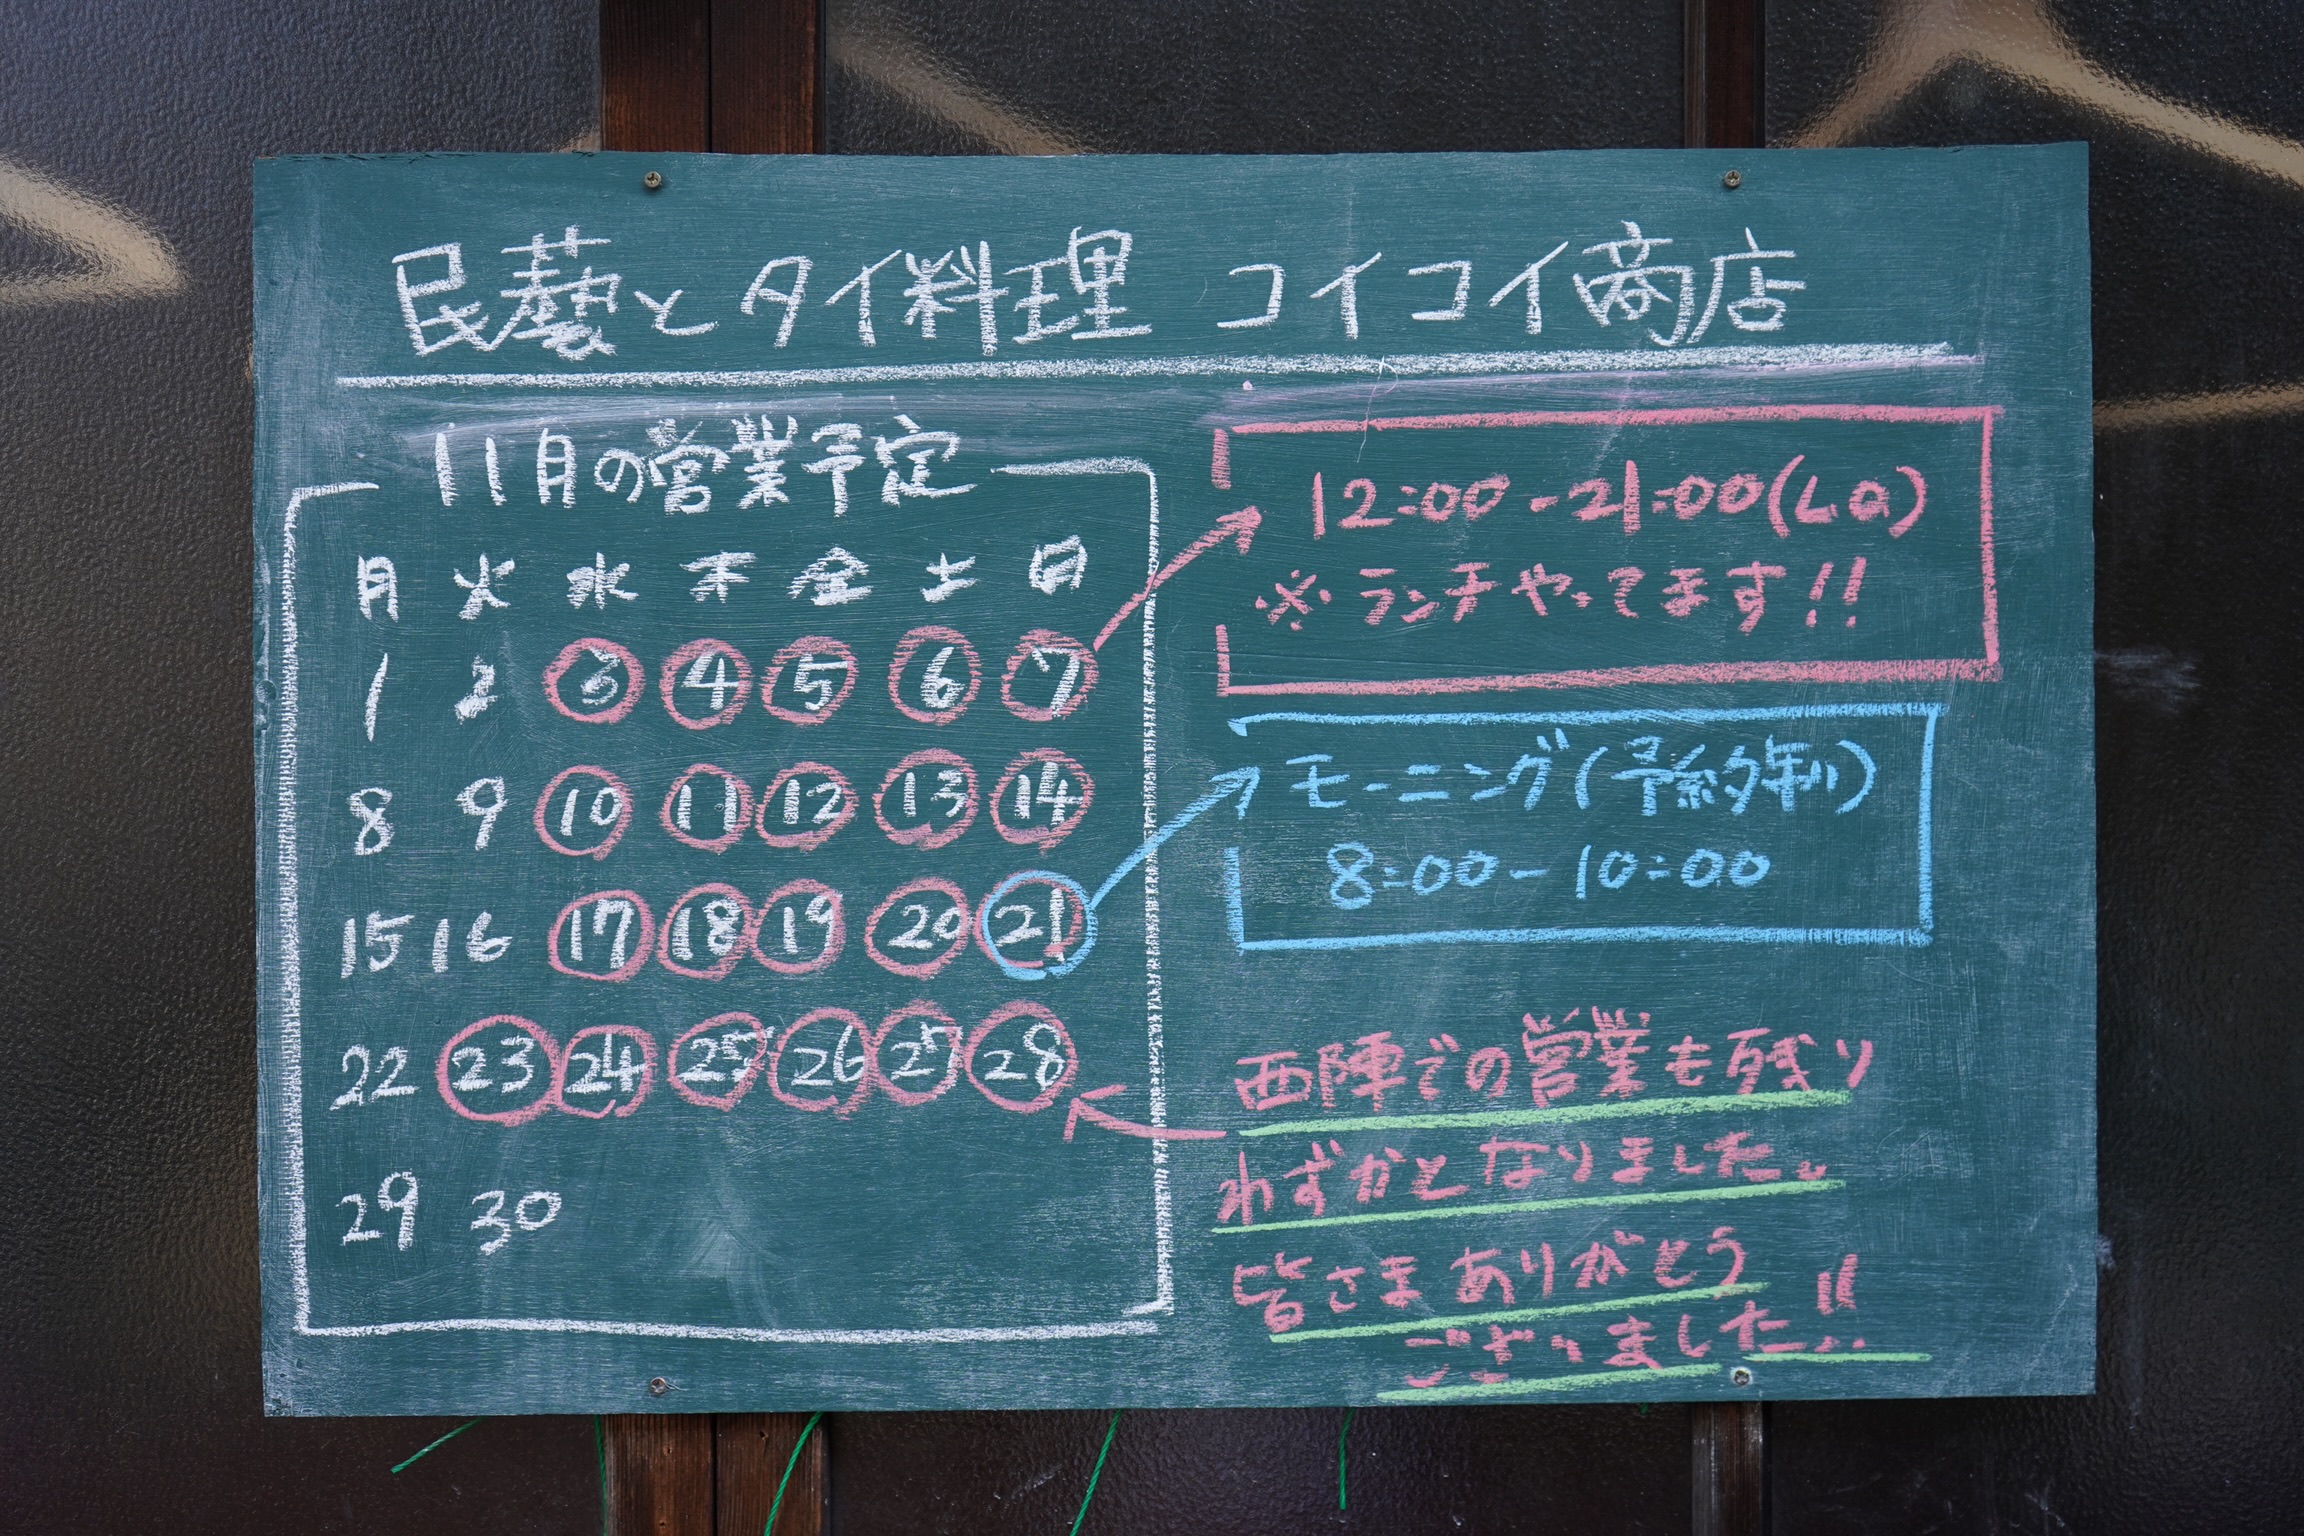 民藝とタイ料理 コイコイ商店
11月の営業予定
月 火 水 木 金 土 日
1 2 3 4 5 6 7
8 9 10 11 12 13 14
15 16 17 18 19 20 21
22 23 24 25 26 27 28
29 30
12:00-21:00(LO)
※ランチやってます!!
モーニング(予約制)
8:00-10:00
西陣での営業も残り
わずかとなりました。
皆さまありがとう
ございました!!